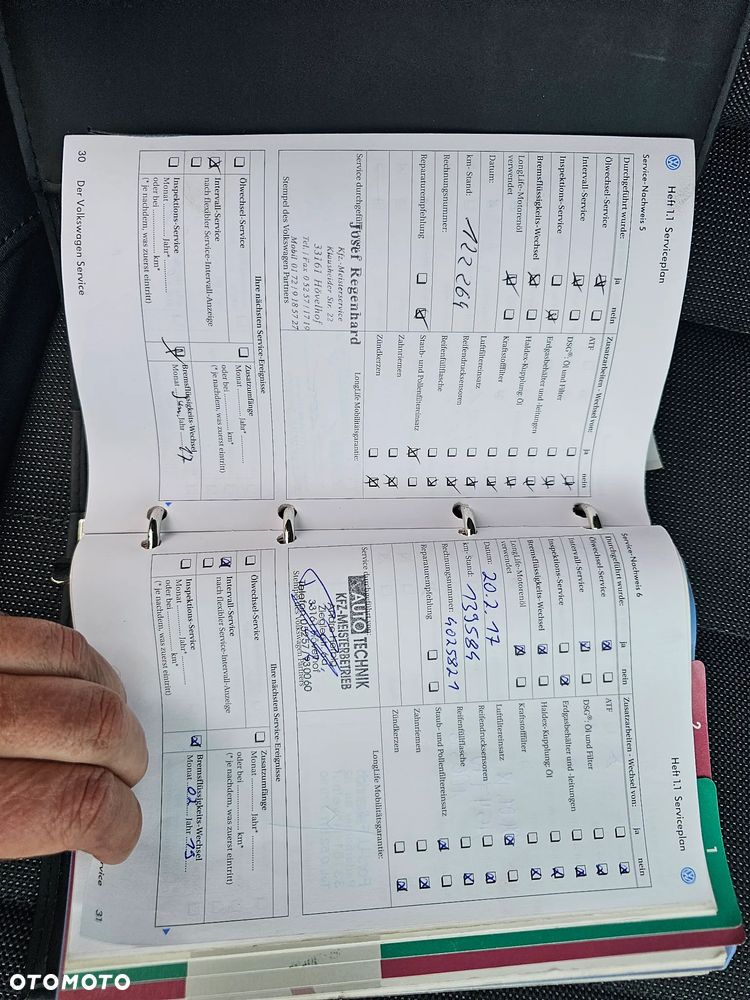 Heft 1.1 Serviceplan
Service-Nachweis 5
Durchgeführt wurde: ja nein
Ölwechsel-Service
Intervall-Service
Inspektions-Service
Bremsflüssigkeits-Wechsel
LongLife-Motorenöl
verwendet
Datum:
km-Stand: 122264
Rechnungsnummer:
Reparaturempfehlung
Zusatzarbeiten - Wechsel von: ja nein
ATF
DSG®: Öl und Filter
Erdgasbehälter und -leitungen
Haldex-Kupplung Öl
Kraftstofffilter
Luftfiltereinsatz
Reifendrucksensoren
Reifenfüllflasche
Staub- und Pollenfiltereinsatz
Zahnriemen
Zündkerzen
Service durchgeführt
LongLife Mobilitätsgarantie:
Josef Regenhard
Kfz.-Meisterservice
Klausheider Str. 22
33161 Hövelhof
Tel. / Fax 0 52 57 / 17 19
Mobil 0172 / 9 18 57 27
Stempel des Volkswagen Partners
Ihre nächsten Service-Ereignisse
Ölwechsel-Service
Intervall-Service
nach flexibler Service-Intervall-Anzeige
Inspektions-Service
Monat .......... Jahr* ..........
oder bei .................... km*
(* je nachdem, was zuerst eintritt)
Zusatzumfänge
Monat .......... Jahr* ..........
oder bei .................... km*
(* je nachdem, was zuerst eintritt)
Bremsflüssigkeits-Wechsel
Monat Jan Jahr 17
30 Der Volkswagen Service
Heft 1.1 Serviceplan
Service-Nachweis 6
Durchgeführt wurde: ja nein
Ölwechsel-Service
Intervall-Service
Inspektions-Service
Bremsflüssigkeits-Wechsel
LongLife-Motorenöl
verwendet
Datum: 20.2.17
km-Stand: 139584
Rechnungsnummer: 4025821
Reparaturempfehlung
Zusatzarbeiten - Wechsel von: ja nein
ATF
DSG®: Öl und Filter
Erdgasbehälter und -leitungen
Haldex-Kupplung Öl
Kraftstofffilter
Luftfiltereinsatz
Reifendrucksensoren
Reifenfüllflasche
Staub- und Pollenfiltereinsatz
Zahnriemen
Zündkerzen
Service durchgeführt
LongLife Mobilitätsgarantie:
AUTO TECHNIK
KFZ-MEISTERBETRIEB
Telefon 05257/930060
Stempel des Volkswagen Partners
Ihre nächsten Service-Ereignisse
Ölwechsel-Service
Intervall-Service
nach flexibler Service-Intervall-Anzeige
Inspektions-Service
Monat .......... Jahr* ..........
oder bei .................... km*
(* je nachdem, was zuerst eintritt)
Zusatzumfänge
Monat .......... Jahr* ..........
oder bei .................... km*
(* je nachdem, was zuerst eintritt)
Bremsflüssigkeits-Wechsel
Monat 02 Jahr 19
Service 31
2
1
OTOMOTO